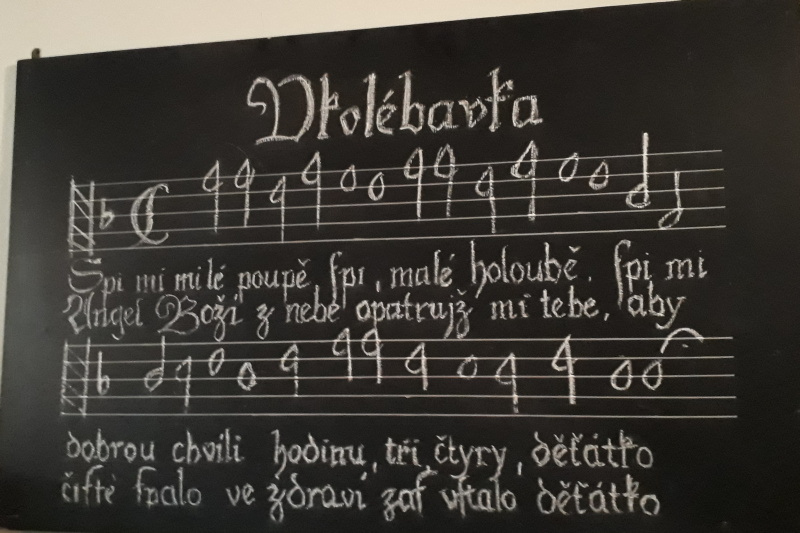 Vkolébavka
Spi mi milé poupě, ſpi, malé holoubě. ſpi mi
Angel Boží z nebe opatrujž mi tebe, aby
dobrou chvíli hodinu, tři, čtyry, děťátko
čiſtě ſpalo ve zdraví zaſ vſtalo děťátko